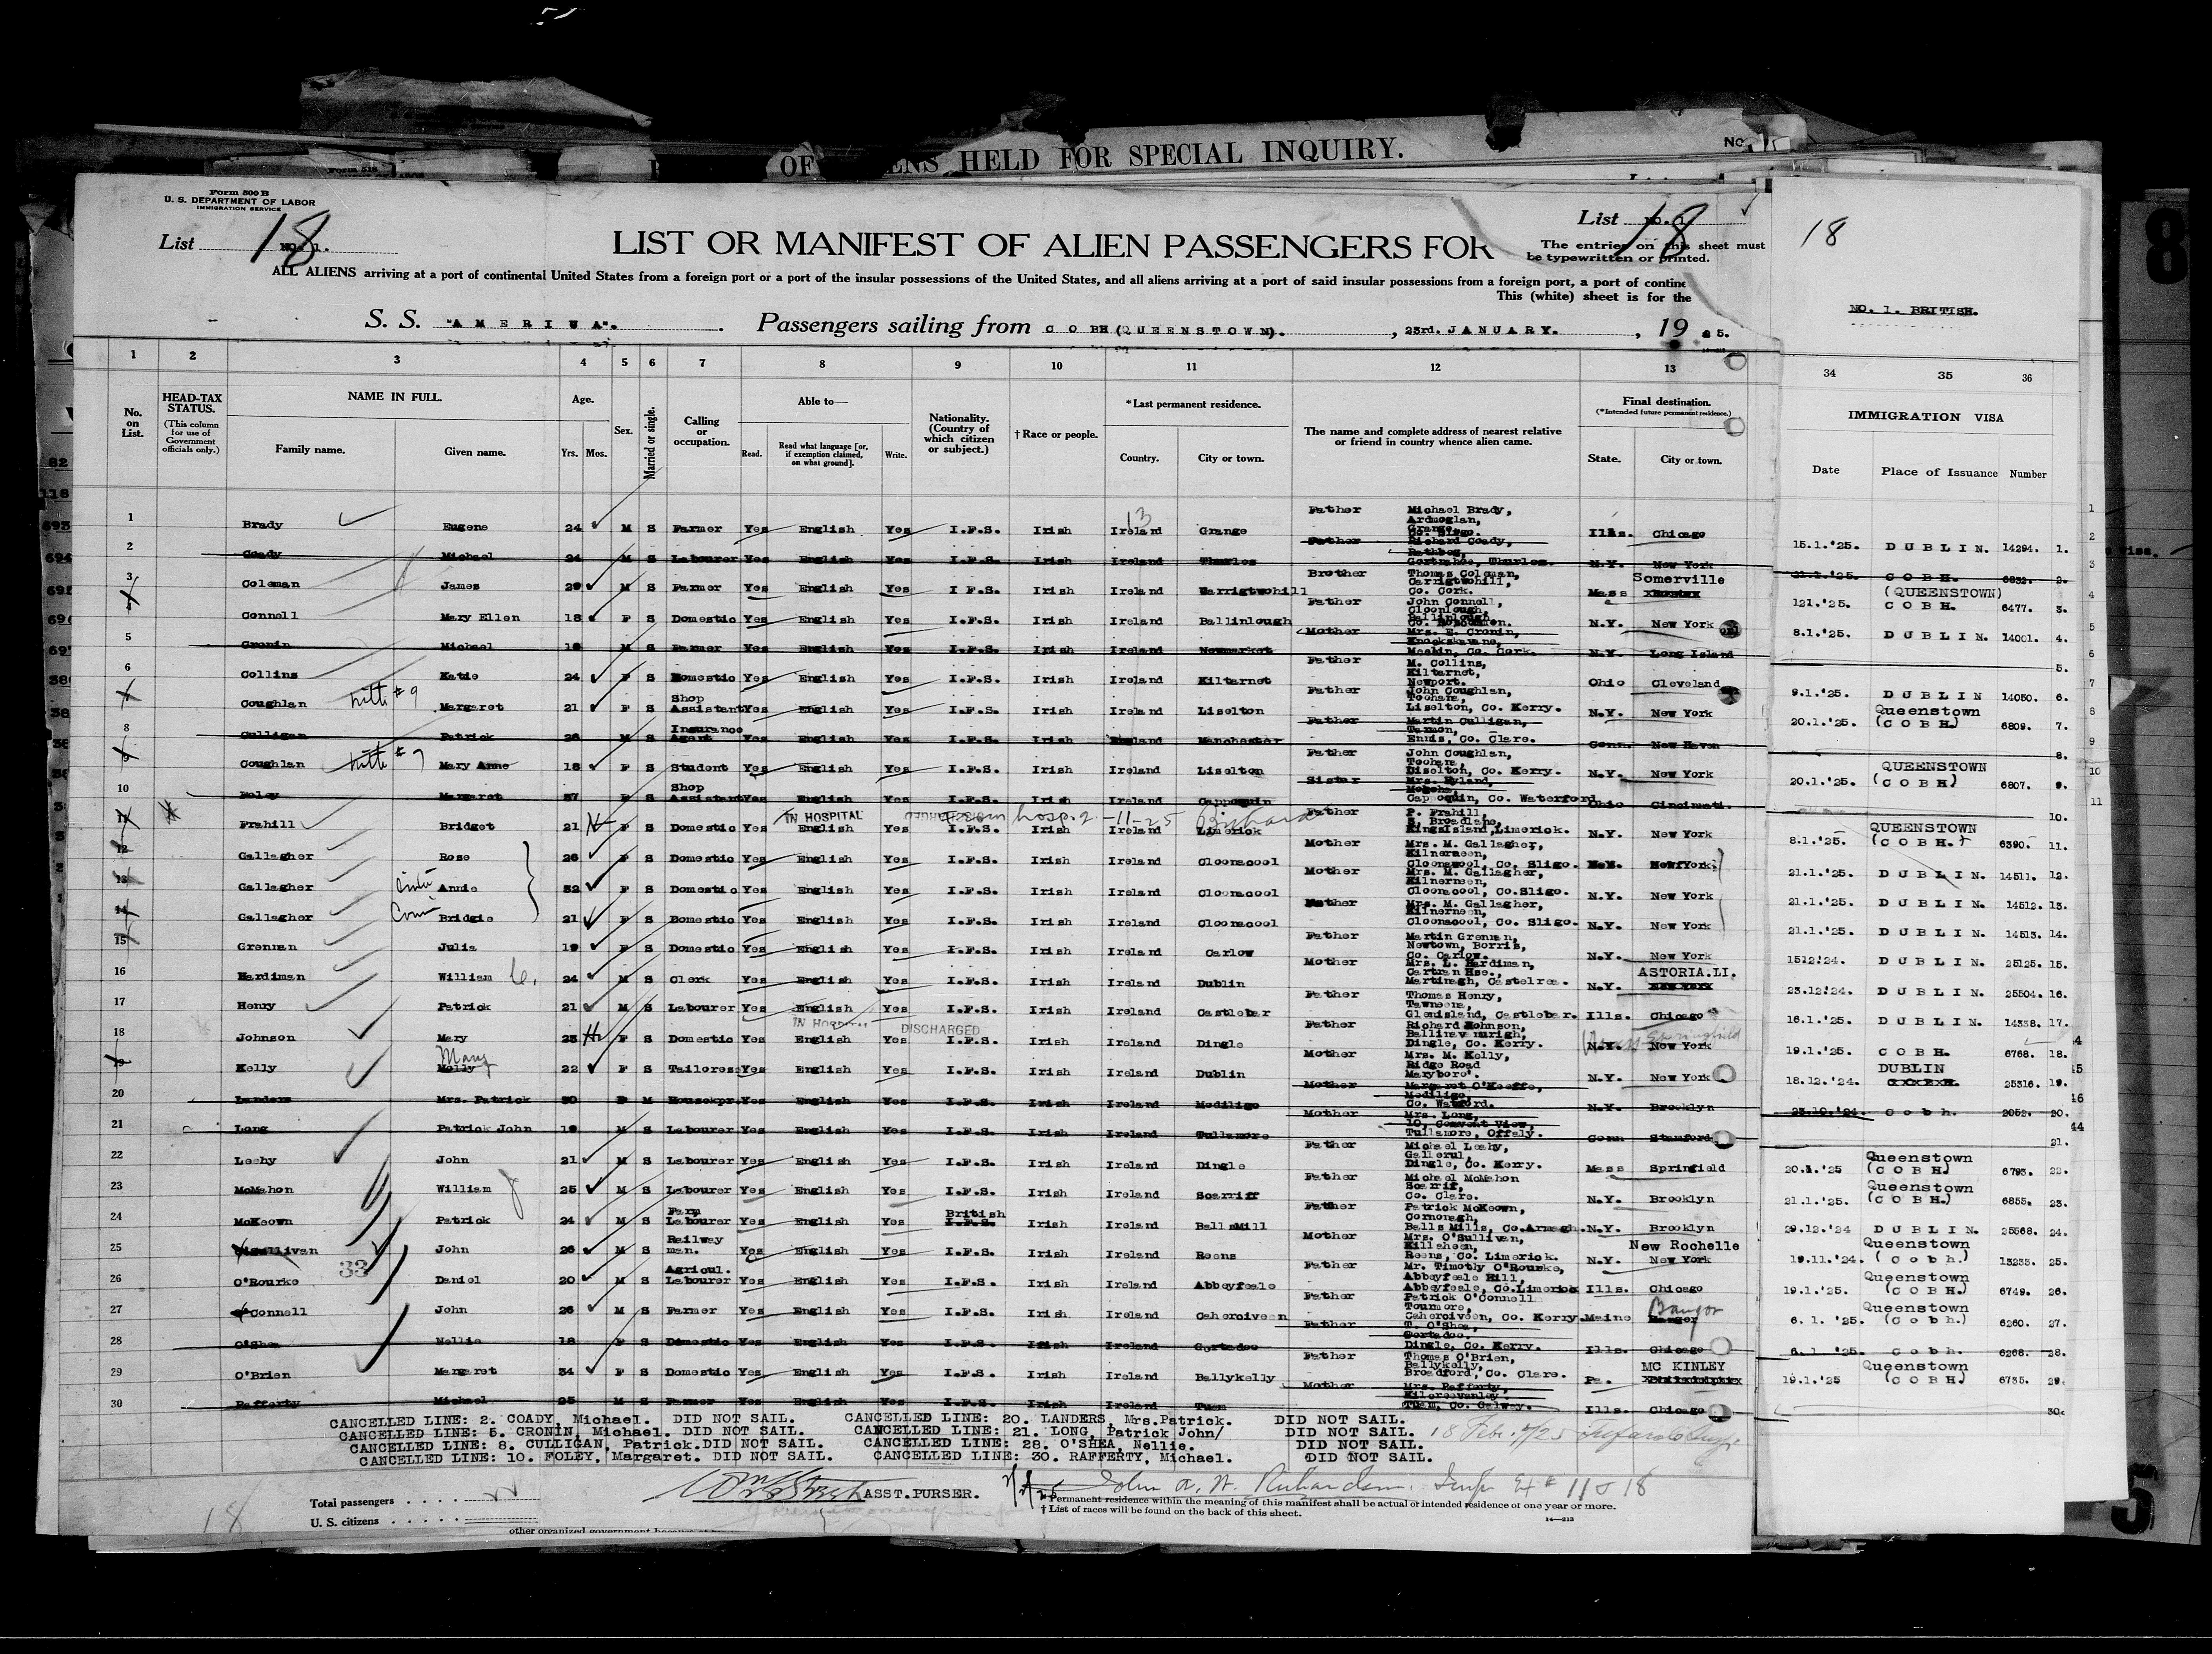 OF ENS HELD FOR SPECIAL INQUIRY.
No.
Form 500 B
U. S. DEPARTMENT OF LABOR
IMMIGRATION SERVICE
List NO. 1. 18
List NO. 1 18
18
LIST OR MANIFEST OF ALIEN PASSENGERS FOR
The entries on this sheet must
be typewritten or printed.
ALL ALIENS arriving at a port of continental United States from a foreign port or a port of the insular possessions of the United States, and all aliens arriving at a port of said insular possessions from a foreign port, a port of contine
This (white) sheet is for the
NO. 1. BRITISH.
S. S. "AMERICA". Passengers sailing from COBH (QUEENSTOWN). , 23rd. JANUARY. , 19 25.
1 2 3 4 5 6 7 8 9 10 11 12 13 34 35 36
No. on List.
HEAD-TAX STATUS.
(This column for use of Government officials only.)
NAME IN FULL.
Family name. Given name.
Age.
Yrs. Mos.
Sex.
Married or single.
Calling or occupation.
Able to—
Read. Read what language [or, if exemption claimed, on what ground]. Write.
Nationality. (Country of which citizen or subject.)
† Race or people.
*Last permanent residence.
Country. City or town.
The name and complete address of nearest relative or friend in country whence alien came.
Final destination.
(*Intended future permanent residence.)
State. City or town.
IMMIGRATION VISA
Date Place of Issuance Number
1 Brady Eugene 24 M S Farmer Yes English Yes I.F.S. Irish Ireland Grange Father Michael Brady, Ardmoglan, Grange, Co. Sligo. Ills. Chicago 15.1.'25. DUBLIN. 14294. 1.
2 Coady Michael 24 M S Labourer Yes English Yes I.F.S. Irish Ireland Thurles Father Richard Coady, Rathbeg, Gortnahoe, Thurles. N.Y. New York 21.1.'25. COBH. 6832. 2.
3 Coleman James 29 M S Farmer Yes English Yes I F.S. Irish Ireland Carrigtwohill Brother Thomas Coleman, Carrigtwohill, Co. Cork. Mass Somerville 121.'25. (QUEENSTOWN) COBH. 6477. 3.
4 Connell Mary Ellen 18 F S Domestic Yes English Yes I.F.S. Irish Ireland Ballinlough Father John Connell, Cloonlough, Ballinlough, Co. Roscommon. N.Y. New York 8.1.'25. DUBLIN. 14001. 4.
5 Cronin Michael 19 M S Farmer Yes English Yes I.F.S. Irish Ireland Newmarket Mother Mrs. E. Cronin, Knockskavane, Meelin, Co. Cork. N.Y. Long Island 5.
6 Collins Katie 24 F S Domestic Yes English Yes I.F.S. Irish Ireland Kiltarnet Father M. Collins, Kiltarnet, Newport. Ohio Cleveland 9.1.'25. DUBLIN 14050. 6.
7 Coughlan #9 Margaret 21 F S Shop Assistant Yes English Yes I.F.S. Irish Ireland Liselton Father John Coughlan, Toohane, Liselton, Co. Kerry. N.Y. New York 20.1.'25. Queenstown (COBH.) 6809. 7.
8 Culligan Patrick 26 M S Insurance Agent Yes English Yes I.F.S. Irish England Manchester Father Martin Culligan, Tarmon, Ennis, Co. Clare. Conn. New Haven 8.
9 Coughlan #7 Mary Anne 18 F S Student Yes English Yes I.F.S. Irish Ireland Liselton Father John Coughlan, Toohane, Diselton, Co. Kerry. N.Y. New York 20.1.'25. QUEENSTOWN (COBH) 6807. 9.
10 Foley Margaret 37 F S Shop Assistant Yes English Yes I.F.S. Irish Ireland Cappoquin Sister Mrs. Hyland, Cappoquin, Co. Waterford. Ohio Cincinnati. 10.
11 Frahill Bridget 21 F S Domestic Yes IN HOSPITAL English Yes DISCHARGED from hosp. 2-11-25 I.F.S. Irish Ireland Limerick Father P. Frahill, Broadlane, Kings Island, Limerick. N.Y. New York 8.1.'25. QUEENSTOWN (COBH.) 6390. 11.
12 Gallagher Rose 26 F S Domestic Yes English Yes I.F.S. Irish Ireland Cloonacool Mother Mrs. M. Gallagher, Kilnerneen, Cloonacool, Co. Sligo. N.Y. New York 21.1.'25. DUBLIN. 14511. 12.
13 Gallagher Annie 32 F S Domestic Yes English Yes I.F.S. Irish Ireland Cloonacool Mother Mrs. M. Gallagher, Kilnerneen, Cloonacool, Co.Sligo. N.Y. New York 21.1.'25. DUBLIN. 14512. 13.
14 Gallagher Bridgie 21 F S Domestic Yes English Yes I.F.S. Irish Ireland Cloonacool Mother Mrs. M. Gallagher, Kilnerneen, Cloonacool, Co. Sligo. N.Y. New York 21.1.'25. DUBLIN. 14513. 14.
15 Grennan Julia 19 F S Domestic Yes English Yes I.F.S. Irish Ireland Carlow Father Martin Grennan, Newtown, Borris, Co. Carlow. N.Y. New York 1512.'24. DUBLIN. 25125. 15.
16 Hardiman William 24 M S Clerk Yes English Yes I.F.S. Irish Ireland Dublin Mother Mrs. L. Hardiman, Cartran Hse., Martinagh, Castelrea. N.Y. ASTORIA.LI. 23.12.'24. DUBLIN. 25504. 16.
17 Henry Patrick 21 M S Labourer Yes English Yes I.F.S. Irish Ireland Castlebar Father Thomas Henry, Tawneena, Glenisland, Castlebar. Ills. Chicago 16.1.'25. DUBLIN. 14338. 17.
18 Johnson Mary 23 F S Domestic Yes IN HOSPITAL English Yes DISCHARGED I.F.S. Irish Ireland Dingle Father Richard Johnson, Dingle, Co. Kerry. N.Y. New York Springfield 19.1.'25. COBH. 6768. 18.
19 Kelly Mary Molly 22 F S Tailoress Yes English Yes I.F.S. Irish Ireland Dublin Mother Mrs. M. Kelly, Ridge Road Maryboro'. N.Y. New York 18.12.'24. DUBLIN 25316. 19.
20 Landers Mrs. Patrick 50 F M Housekpr. Yes English Yes I.F.S. Irish Ireland Modiligo Mother Margaret O'Keeffe, Modiligo, Co. Watford. N.Y. Brooklyn 23.10.'24. Cobh. 2052. 20.
21 Long Patrick John 19 M S Labourer Yes English Yes I.F.S. Irish Ireland Tullamore Mother Mrs. Long, 10, Convent View, Tullamore, Offaly. Conn Stamford 21.
22 Leahy John 21 M S Labourer Yes English Yes I.F.S. Irish Ireland Dingle Father Michael Leahy, Gallerul, Dingle, Co. Kerry. Mass Springfield 20.1.'25 Queenstown (COBH.) 6793. 22.
23 McMahon William 25 M S Labourer Yes English Yes I.F.S. Irish Ireland Scarriff Father Michael McMahon Scarrif, Co. Clare. N.Y. Brooklyn 21.1.'25. Queenstown (COBH.) 6855. 23.
24 McKeown Patrick 24 M S Farm Labourer Yes English Yes British I.F.S. Irish Ireland BallsMill Father Patrick McKeown, Cornonagh, Balls Mills, Co.Armagh. N.Y. Brooklyn 29.12.'24 DUBLIN. 25568. 24.
25 O'Sullivan John 26 M S Railway man. Yes English Yes I.F.S. Irish Ireland Reens Mother Mrs. O'Sullivan, Killaheen, Reens, Co. Limerick. N.Y. New Rochelle New York 19.11.'24. Queenstown (Cobh.) 13233. 25.
33
26 O'Rourke Daniel 20 M S Agricul. Labourer Yes English Yes I.F.S. Irish Ireland Abbeyfeale Father Mr. Timothy O'Rourke, Abbeyfeale Hill, Abbeyfeale, Co.Limerick Ills. Chicago 19.1.'25. Queenstown (COBH.) 6749. 26.
27 O'Connell John 26 M S Farmer Yes English Yes I.F.S. Irish Ireland Caherciveen Father Patrick O'Connell Tournore, Caherciveen, Co. Kerry. Maine Bangor 6.1.'25. Queenstown (Cobh.) 6260. 27.
28 O'Shea Nellie 18 F S Domestic Yes English Yes I.F.S. Irish Ireland Gortadoo Father T. O'Shea, Gortadoo, Dingle, Co. Kerry. Ills. Chicago 6.1.'25. Cobh. 6268. 28.
29 O'Brien Margaret 34 F S Domestic Yes English Yes I.F.S. Irish Ireland Ballykelly Father Thomas O'Brien, Ballykelly, Broadford, Co. Clare. Pa. MC KINLEY 19.1.'25 Queenstown (COBH.) 6735. 29.
30 Rafferty Michael 25 M S Farmer Yes English Yes I.F.S. Irish Ireland Tuam Mother Mrs. Rafferty, Kilcreevanley, Tuam, Co. Galway. Ills. Chicago 30.
CANCELLED LINE: 2. COADY, Michael. DID NOT SAIL. CANCELLED LINE: 20. LANDERS, Mrs.Patrick. DID NOT SAIL.
CANCELLED LINE: 5. CRONIN, Michael. DID NOT SAIL. CANCELLED LINE: 21. LONG, Patrick John/ DID NOT SAIL.
CANCELLED LINE: 8. CULLIGAN, Patrick.DID NOT SAIL. CANCELLED LINE: 28. O'SHEA, Nellie. DID NOT SAIL.
CANCELLED LINE: 10. FOLEY, Margaret. DID NOT SAIL. CANCELLED LINE: 30. RAFFERTY, Michael. DID NOT SAIL.
ASST.PURSER.
John A. W. Richardson.
Total passengers
U. S. citizens
18
* Permanent residence within the meaning of this manifest shall be actual or intended residence of one year or more.
† List of races will be found on the back of this sheet.
14—213